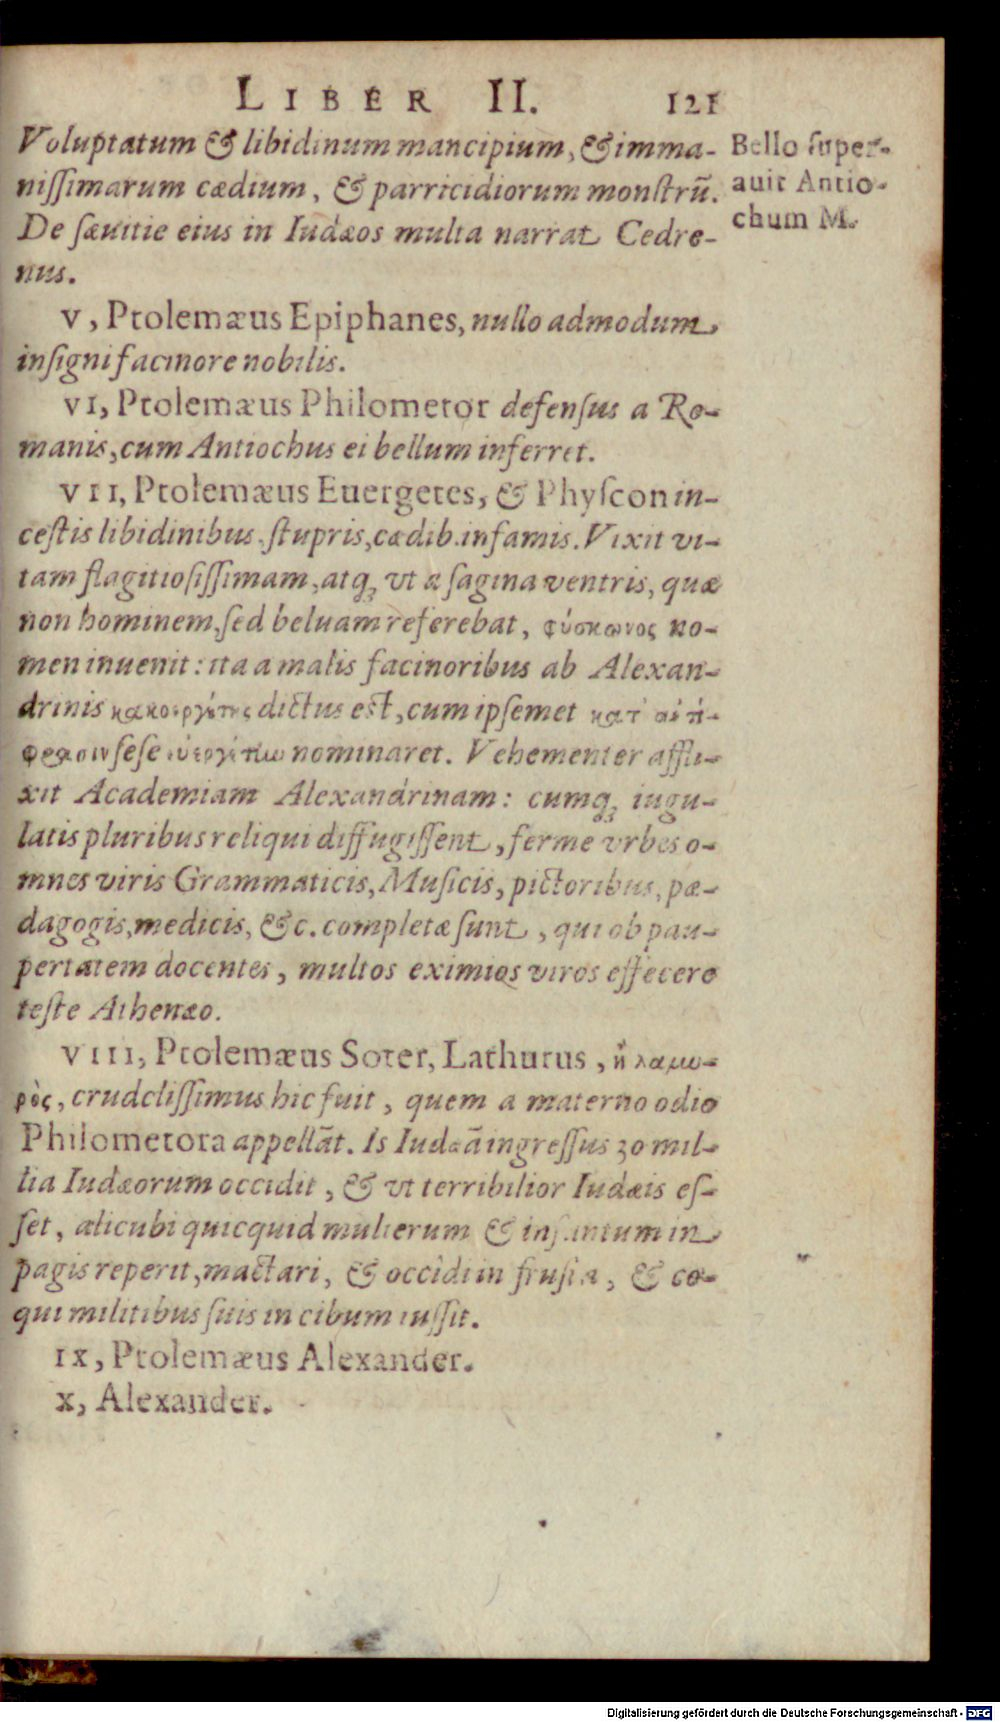 LIBER II. 121
Voluptatum & libidinum mancipium, & imma-
nissimarum cædium, & parricidiorum monstrū.
De sæuitie eius in Iudæos multa narrat Cedre-
nus.
Bello super-
auit Antio-
chum M.
V, Ptolemæus Epiphanes, nullo admodum
insigni facinore nobilis.
VI, Ptolemæus Philometor defensus a Ro-
manis, cum Antiochus ei bellum inferret.
VII, Ptolemæus Euergetes, & Physcon in-
cestis libidinibus, stupris, cædib. infamis. Vixit vi-
tam flagitiosissimam, atq; vt a sagina ventris, quæ
non hominem, sed beluam referebat, φύσκωνος no-
men inuenit: ita a malis facinoribus ab Alexan-
drinis κακοεργέτης dictus est, cum ipsemet κατ' ἀντί-
φρασιν sese εὐεργέτην nominaret. Vehementer affli-
xit Academiam Alexandrinam: cumq; iugu-
latis pluribus reliqui diffugissent, ferme vrbes o-
mnes viris Grammaticis, Musicis, pictoribus, pæ-
dagogis, medicis, &c. completæ sunt, qui ob pau-
pertatem docentes, multos eximios viros effecere
teste Athenæo.
VIII, Ptolemæus Soter, Lathurus,
crudelissimus hic fuit, quem a materno odio
Philometora appellāt. Is Iudæā ingressus 30 mil-
lia Iudæorum occidit, & vt terribilior Iudæis es-
set, alicubi quicquid mulierum & infantum in
pagis reperit, mactari, & occidi in frusta, & co-
qui militibus suis in cibum iussit.
IX, Ptolemæus Alexander.
X, Alexander.
Digitalisierung gefördert durch die Deutsche Forschungsgemeinschaft - DFG